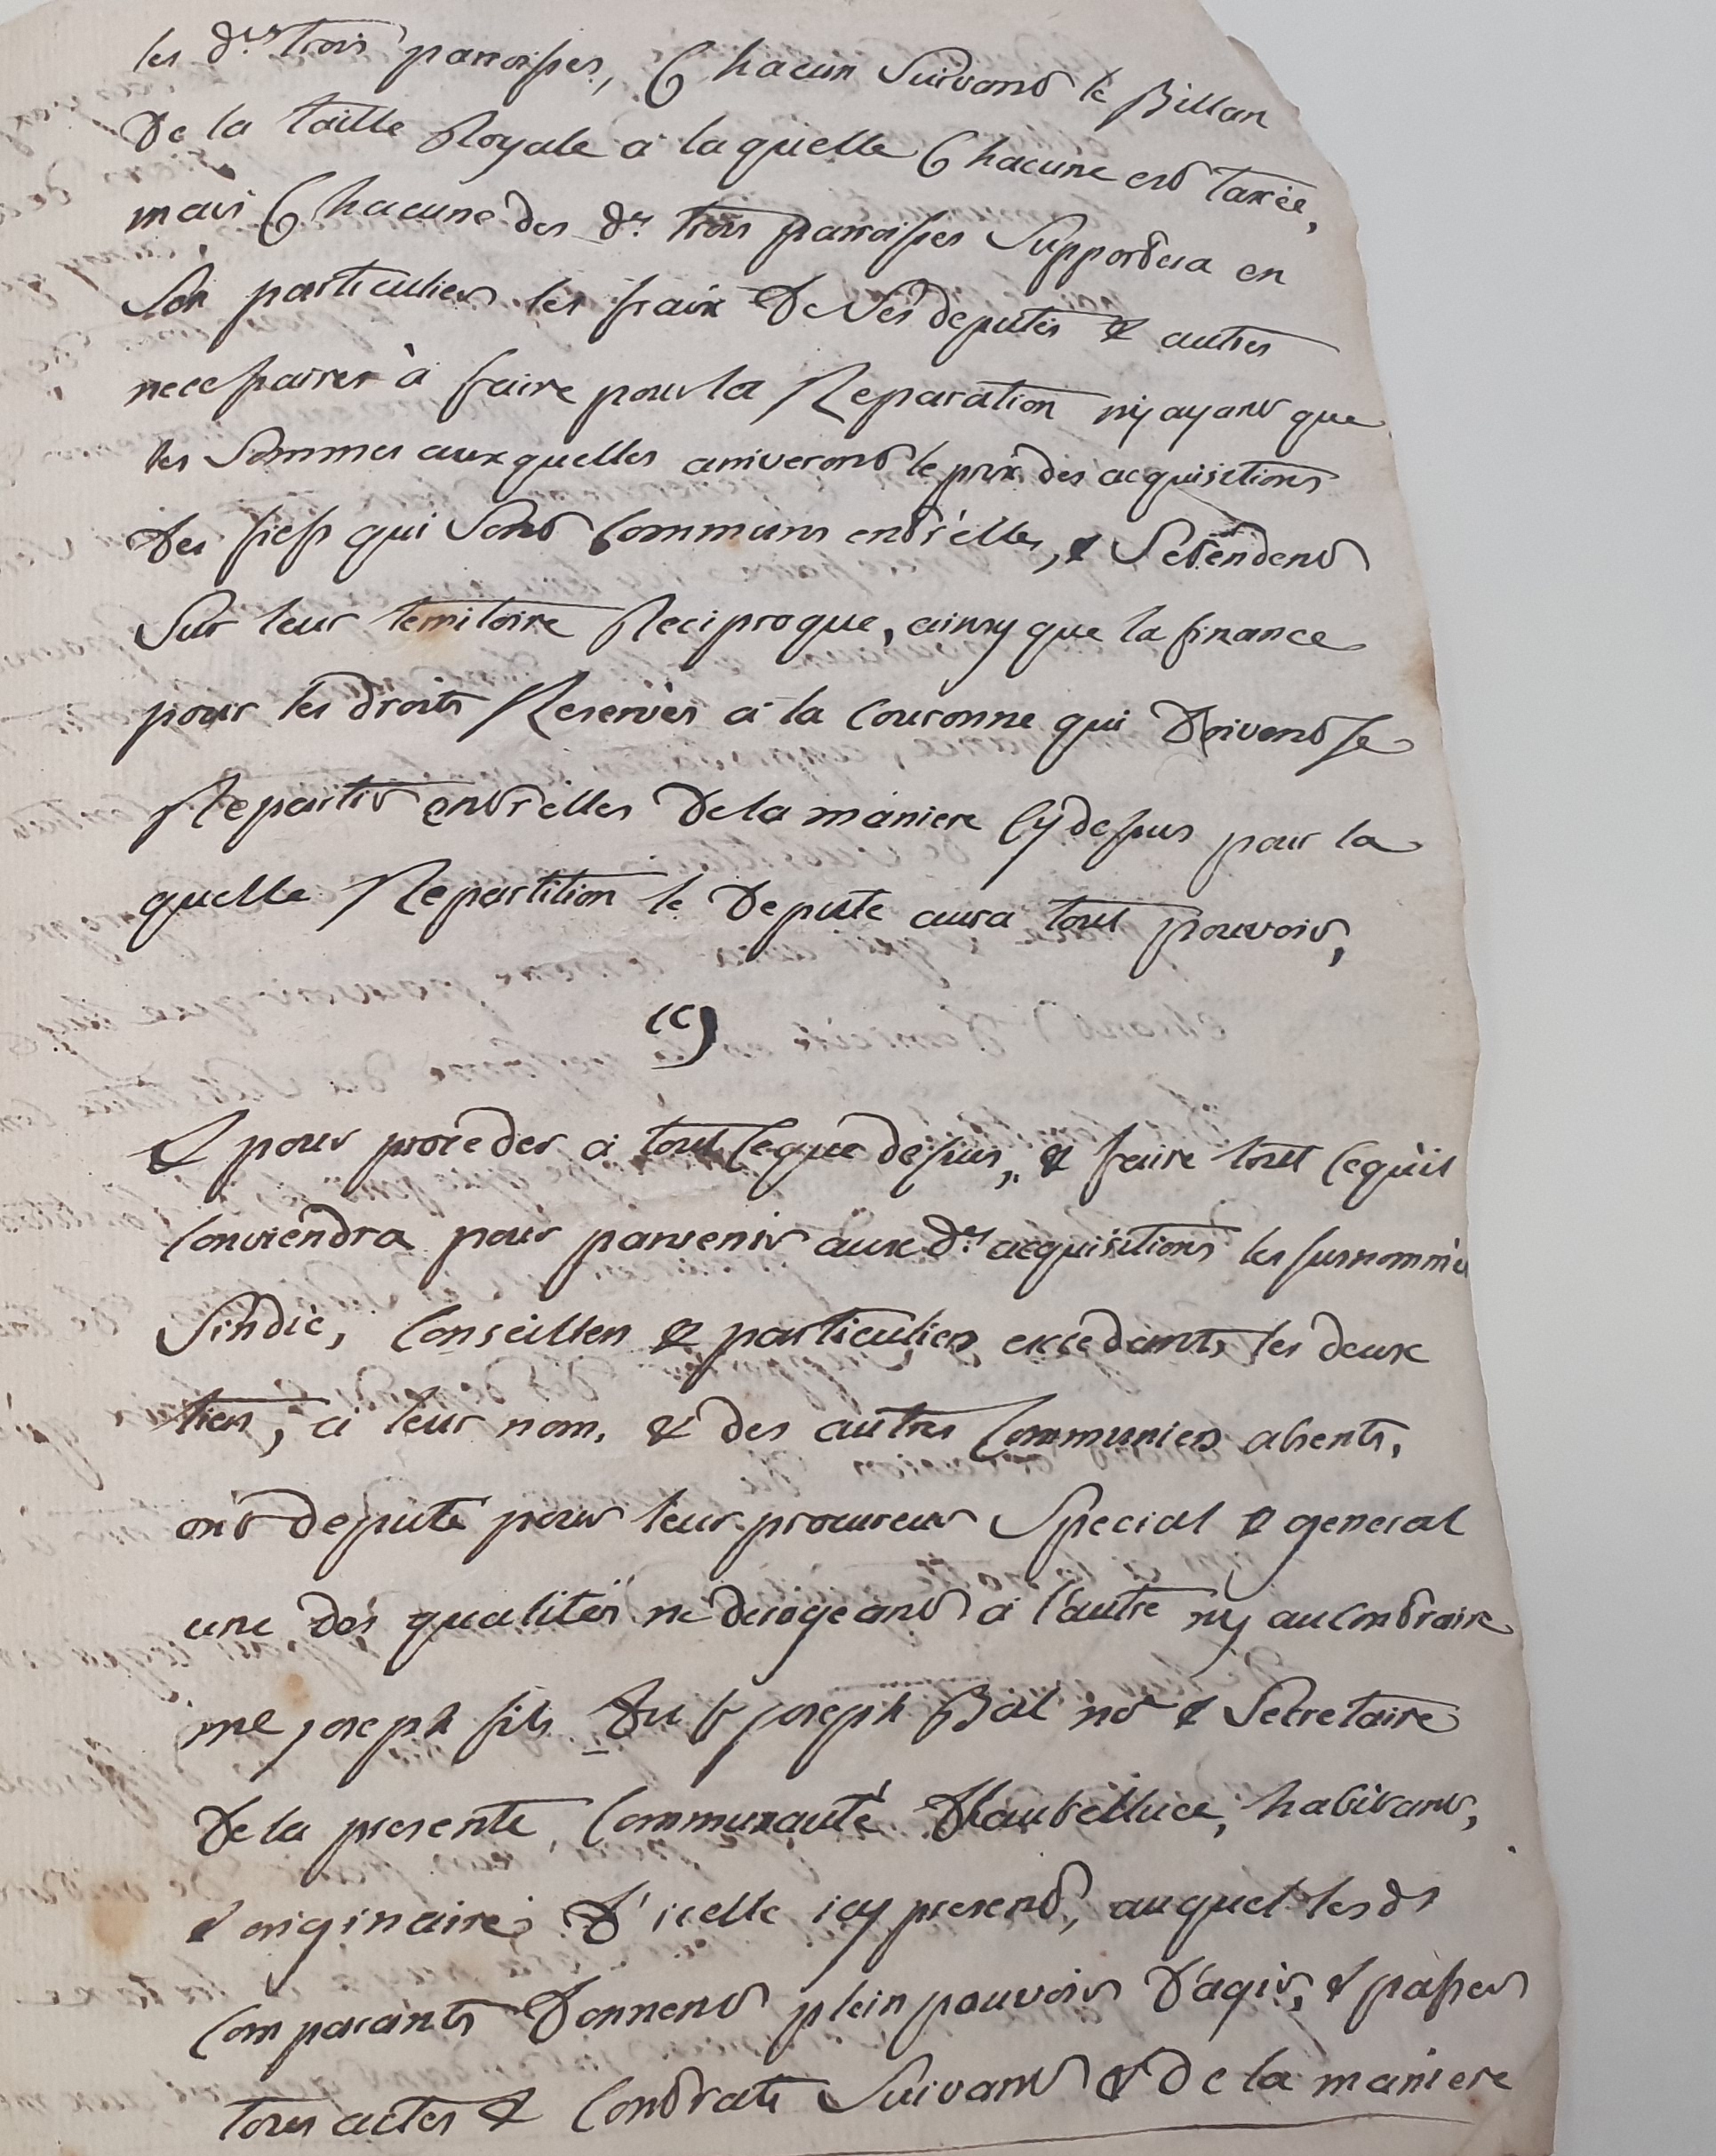 les d.es trois parroisses, Chacun Suivant le Billan
De la taille Royale a la quelle Chacune est taxée,
mais Chacune des d.es trois parroisses Supportera en
Son particulier les fraix De Ses deputés & autres
necessaires à faire pour la Reparation n'y ayant que
les Sommes auxquelles arriveront le prix des acquisitions
Des fiefs qui Sont Communs entr'elles, & S'etendent
Sur leur territoire Reciproque, ainsy que la finance
pour les droits Reservés a la Couronne qui Doivent se
Repartir entr'elles De la maniere Cy dessus pour la
quelle Repartition le Deputé aura tout pouvoir,
& pour proceder a tout Ceque dessus, & faire tout Cequ'il
Conviendra pour parvenir aux d.es acquisitions les surnommés
Sindic, Conseillers & particuliers excedants les deux
tiers, a leur nom, & des autres Communiers absents,
ont deputé pour leur procureur Special & general
une des qualités ne derogeant a l'autre ny au Contraire
me joseph fils Du s.r joseph Bal not.e & Secretaire
De la presente Communauté D'hauteluce, habitant,
& originaire D'icelle icy present, auquel les d.s
Comparants Donnent plein pouvoir D'agir, & passer
tous actes & Contrats Suivant & De la maniere